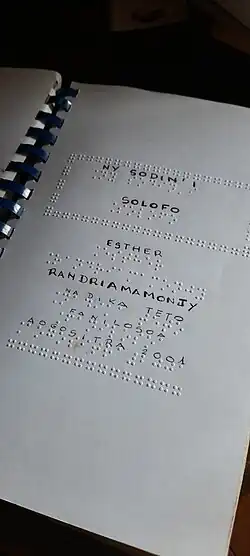 NY SODIN' I
SOLOFO
ESTHER
RANDRIAMAMONJY
NADIKA TETO
FANILO SOA
AOGOSITRA 2001